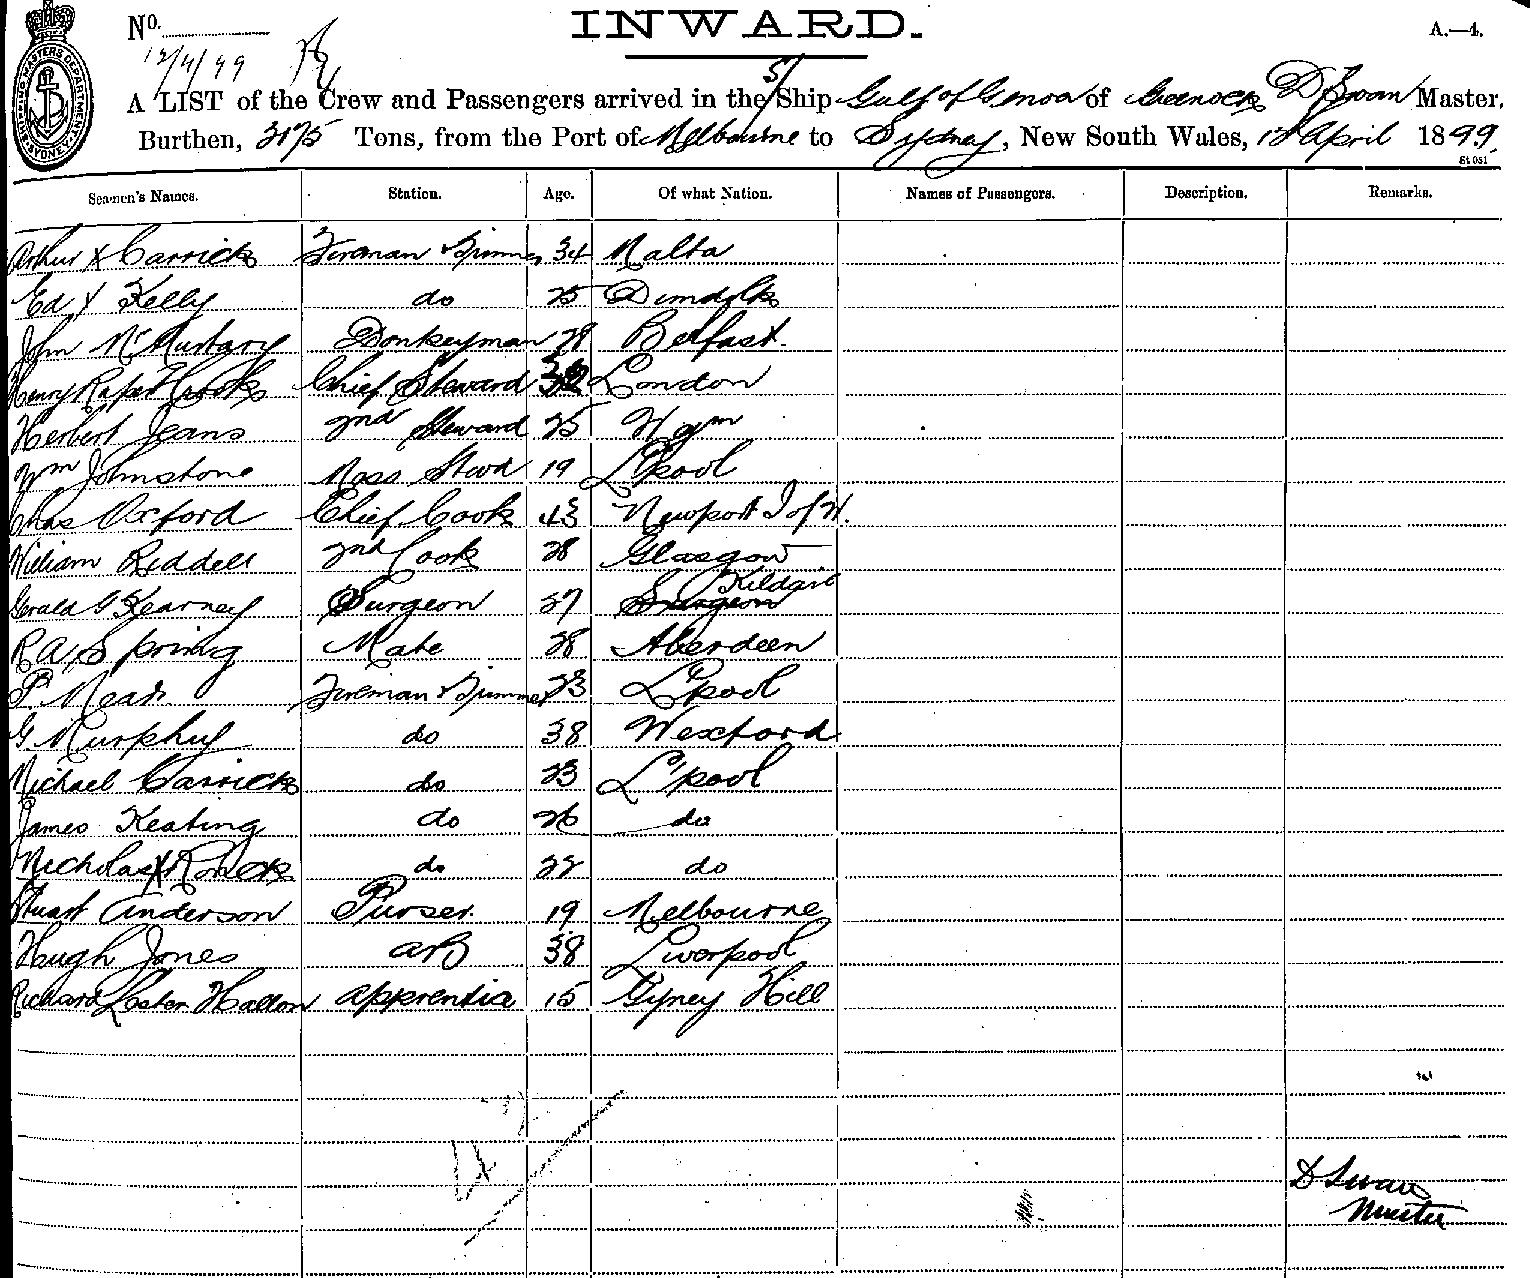 No.
INWARD.
A.—4.
12/4/99
A LIST of the Crew and Passengers arrived in the S/Ship Gulf of Genoa of Greenock D Swan Master,
Burthen, 3175 Tons, from the Port of Melbourne to Sydney, New South Wales, 12 April 1899.
St 051
Seamen's Names. Station. Age. Of what Nation. Names of Passengers. Description. Remarks.
Arthur X Carrick Fireman & Trimmer 34 Malta
Ed X Kelly do 25 Dundalk
John McMurtary Donkeyman 28 Belfast.
Henry Rupert Crooks Chief Steward London
Herbert Jeans 2nd Steward 25
Wm Johnstone Mess Stwd 19 L'pool
Chas Oxford Chief Cook 43 Newport I of W.
William Liddell 2nd Cook 28 Glasgow
Gerald G Kearney Surgeon 27 Surgeon Kildare
R A Spring Mate 28 Aberdeen
P. Mead Fireman & Trimmer 23 L'pool
G Murphy do 38 Wexford
Michael Carrick do 23 L'pool
James Keating do 26 do
Nicholas X do 22 do
Stuart Anderson Purser. 19 Melbourne
Hugh Jones AB 38 Liverpool
Richard Lester Hatton apprentice 15 Gipsey Hill
D Swan
Master